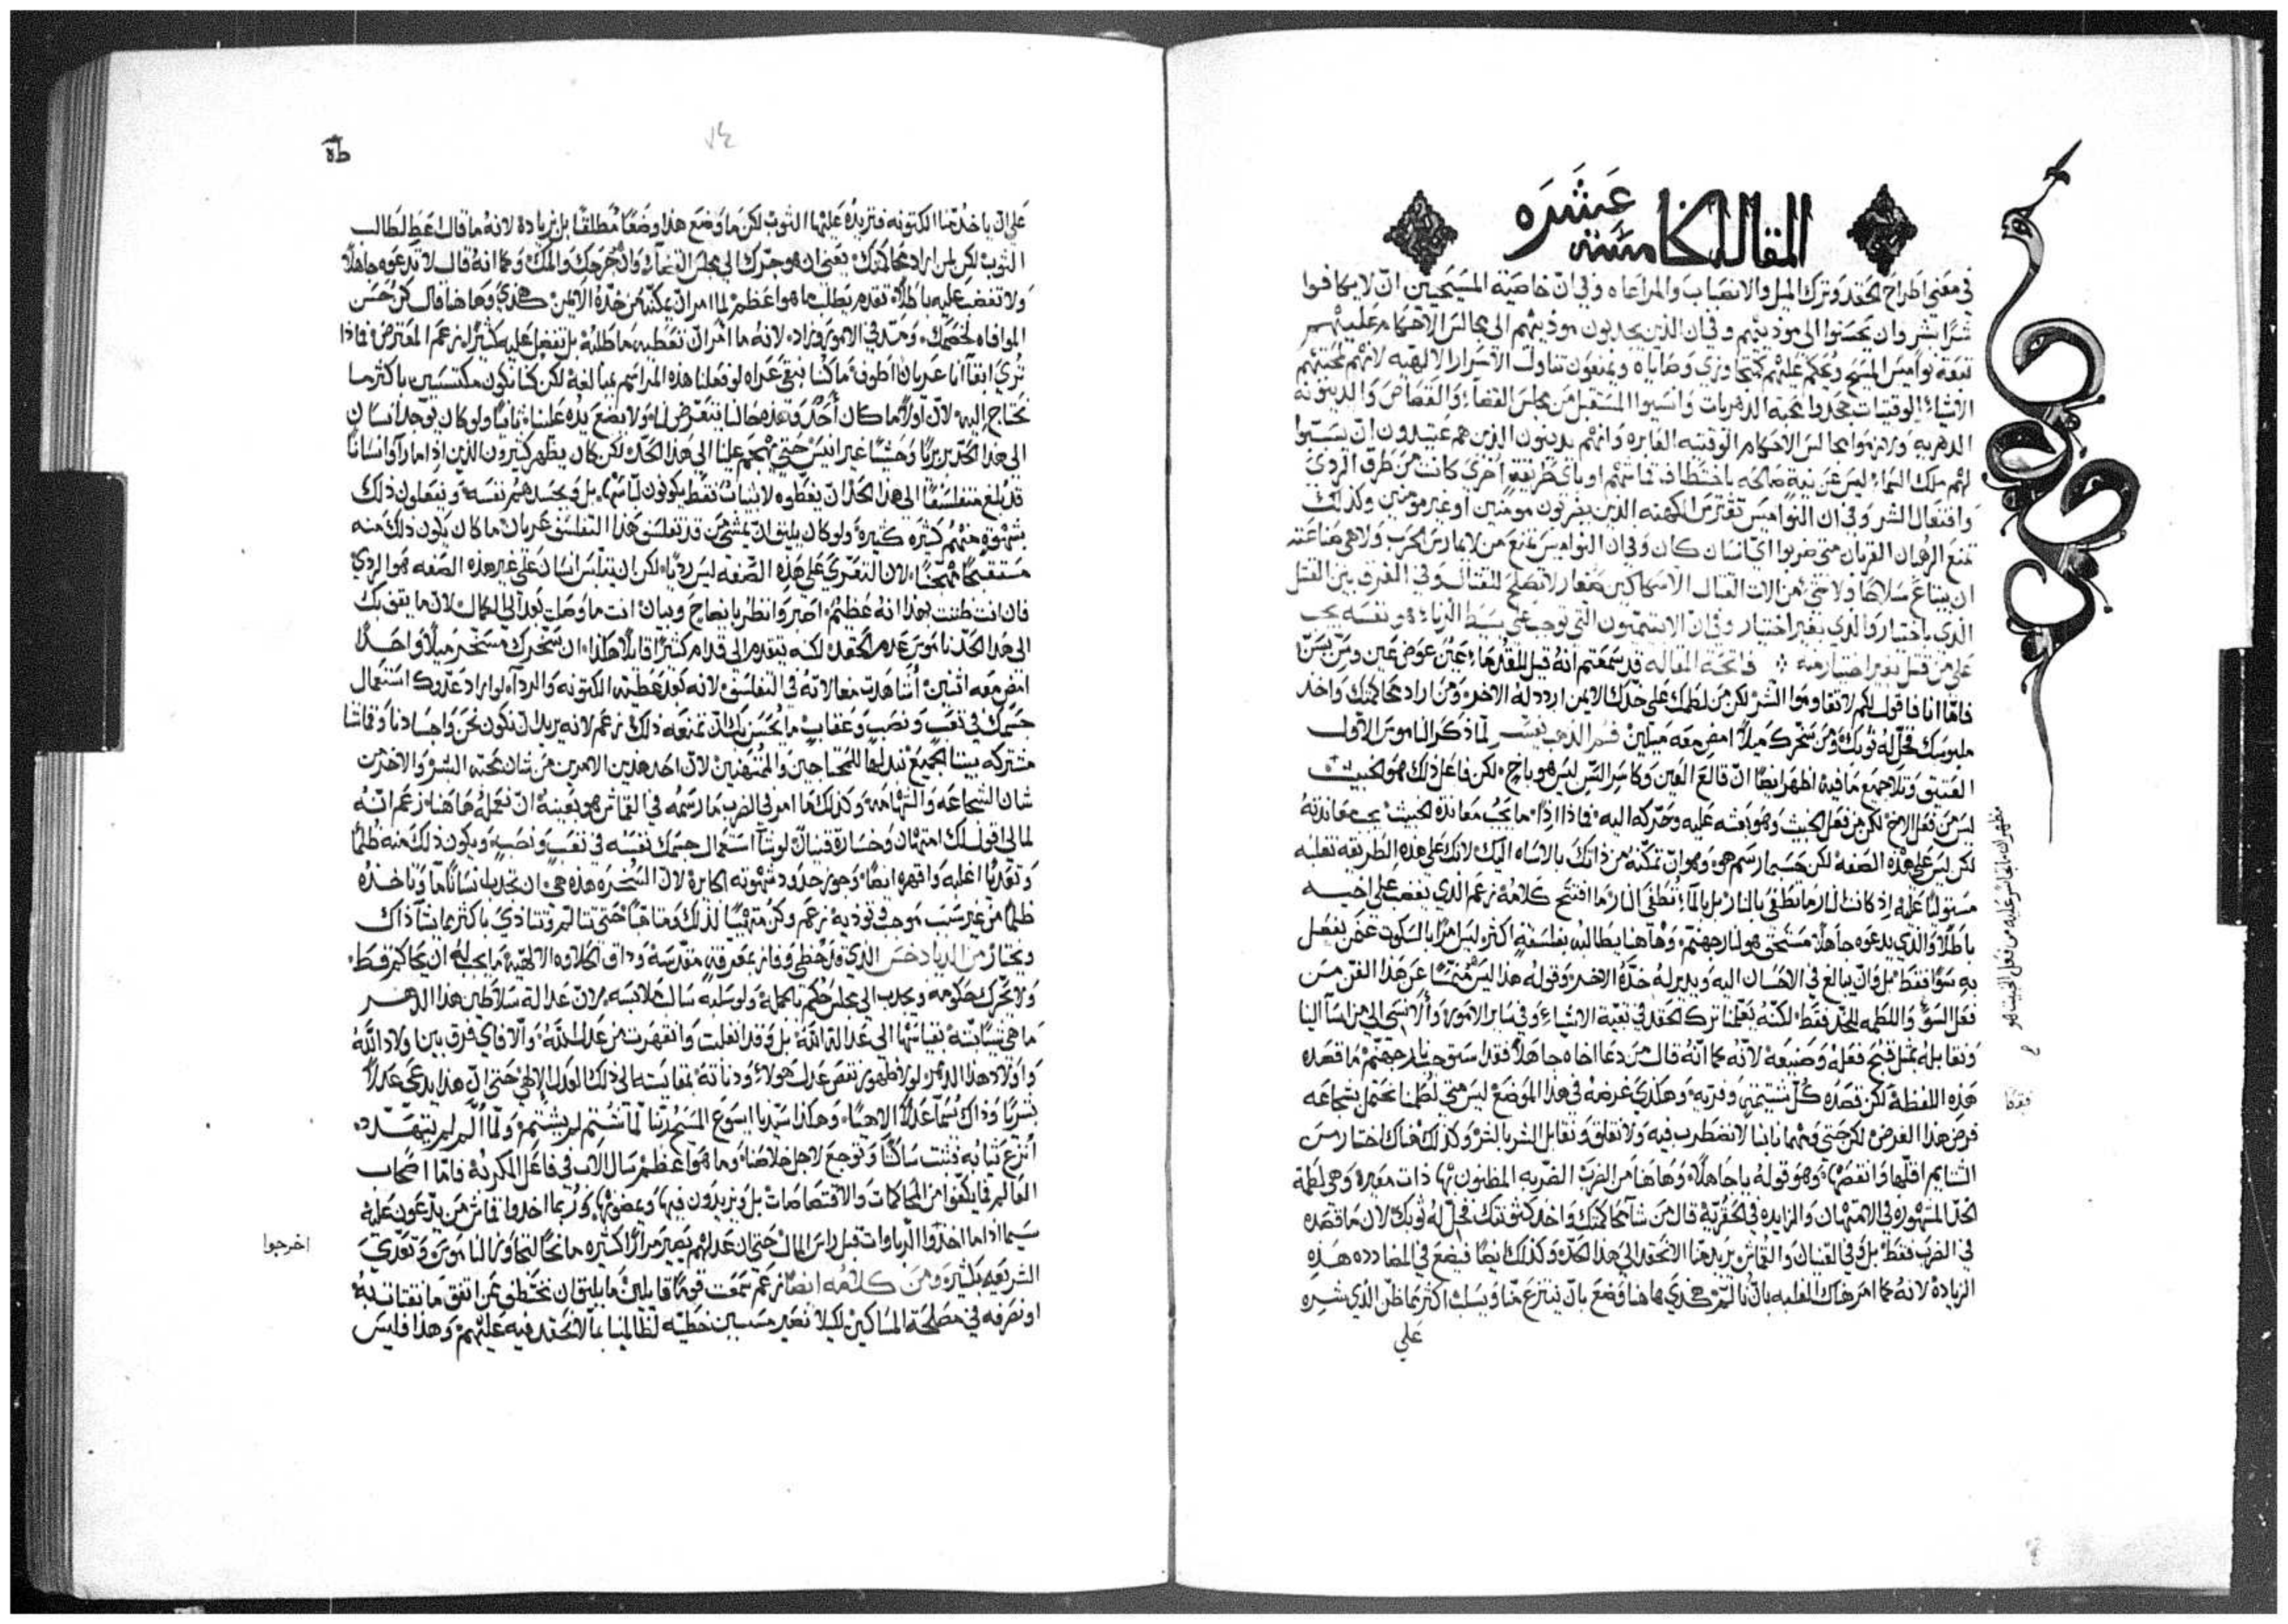 المقاله الخامسة عشره
في معني اطراح الحقد وترك الميل والانصباب والمراعاه وفي ان خاصية المسيحيين ان لا يكافوا
شرًا بشر وان يحسنوا الي موذيهم وفي ان الذين يجدبون موذيهم الي مجالس الاحكام عليهم
تبعة نواميس المسيح ويحكم عليهم كمتجاوزي وصاياه ويمنعون تناول الاسرار الالهيه لانهم لمحبتهم
الاشياء الوقتيات جحدوا محبة الدهريات وانسيوا المستقبل من مجلس القضاء والقصاص والدينونه
الدهريه وكرموا مجالس الاحكام الوقتيه الغابره وانهم يدينون الذين هم عتيدون ان يستبوا
لهم ملك السماء ليس عن نية صالحه باختطاف قماشهم او باي طريقة اخري كانت من طرق الردي
وافتعال الشر وفي ان النواميس تفترض الكهنه الذين يضربون مومنين او غير مومنين وكذلك
تمنع الرهبان القربان متي ضربوا اي انسان كان وفي ان النواميس تمنع من لا يمارس الحرب ولا هي صناعته
ان يبتاع سلاحًا ولا شي من الات القتال الا سكاكين صغار لا تصلح للقتال وفي الفرق بين القتل
الذي باختيار والذي بغير اختيار وفي ان الابتيميون التي توجب علي بسيط الزناء هو نفسه يجب
علي من قتل بغير اختيار منه فاتحة المقاله قد سمعتم انه قيل للقدماء عين عوض عين وسن بسن
فاما انا فاقول لكم لا تقاوموا الشر لكن من لطمك علي خدك الايمن اردد له الاخر ومن اراد محاكمتك واخذ
ملبوسك فخل له ثوبك ومن سخرك ميلاً امض معه ميلين فم الذهب يفسر لما ذكر الناموس الاول
العتيق وتلا جميع ما فيه اظهر ايضا ان قالع العين وكاسر السن ليس هو باخ لكن فاعل ذلك هو الخبيث
ليس من فعل الاخ لكن من فعل الخبيث وهو بعثه عليه وحركه اليه فماذا اذا ما يجب معاندة الخبيث يجب معاندته
لكن ليس علي هذه الصفه لكن حسبما رسم هو وهو ان تمكنه من ذاتك بالاساه اليك لانك علي هذه الطريقه تغلبه
مستوليًا عليه اذ كانت النار ما تطفي بالنار بل بالماء تطفي النار ما افتتح كلامه زعم الذي يغضب علي اخيه
باطلاً والذي يدعوه جاهلاً مستحق هو لنار جهنم وهاهنا يطالب بفلسفة اكثر ليس امرًا بالسكوت عمن يفعل
به سوًا فقط بل وان يبالغ في الاحسان اليه ويدير له خده الاخر وقوله هذا ليس متممًا عن هذا الفن من
فعل السو واللطمه للخد فقط لكنه يعلمنا ترك الحقد في بقية الاشياء وفي ساير الامور والا نسي الي من اسا الينا
ونقابله بمثل قبح فعله وصنيعه لانه كما انه قال من دعا اخاه جاهلاً فقد استوجب نار جهنم ما قصده
هذه اللفظة لكن قصده كل شتيمة وفرية وهكذي غرضه في هذا الموضع ليس متي لطمنا نحتمل بشجاعه
فرض هذا الغرض لكن حتي ومهما نابنا لا نضطرب فيه ولا نقلق ونقابل الشر بالشر وكذلك هناك اختار من
الشتايم اقلها وانقصها وهو قوله يا جاهلاً وهاهنا من الضرب الضربه المظنون بها ذات معيره وهي لطمة
الخد المشهوره في الامتهان والزايده في الحقريه قال من شآ محاكمتك واخذ كتونتك فخل له ثوبك لان ما قصده
في الضرب فقط بل وفي القنيات والقماش يريد منا الا نحقد الي هذا الحد وكذلك ايضا فيضع في المضادده هذه
الزيادة لانه كما امر هناك الغلبه بان نالم هكذي هاهنا وضع بان ينتزع منا ويسلب اكثر مما ظن الذي شره
علي
مظهر ان ما تجاسر عليه من فعل الخبيث هو
طه
علي ان ياخذ منا الكتونه فنزيده عليها الثوب لكن ما وضع هذا وضعًا مطلقًا بل بزيادة لانه ما قال اعط لطالب
الثوب لكن لمن اراد محاكمتك يعني ان هو جرك الي مجلس القضاء وان يخرجك والملك وكما انه قال لا تدعوه جاهلاً
ولا تغضب عليه باطلاً تقدم يطلب ما هو اعظم لما امر ان يمكنه من خده الايمن هكذي وهاهنا قال كن حسن
الموافاه لخصمك ومد في الامور وزاد لانه ما امر ان نعطيه ما طلبه بل نتفضل عليه كثيرًا زعم المعترض فماذا
تري ابقا انا عريان اطوف ما كنا نبقي عراه لو فعلنا هذه المراسم بمبالغة لكن كنا نكون مكتسيين باكثر مما
نحتاج اليه لان اولاً ما كان احد وهذه حالنا يتعرض لنا ولا يضع يده علينا ثانيًا ولو كان يوجد انسان
الي هذا الحد بربريًا وحشيًا غير انيس حتي يهجم علينا الي هذا الحد لكن كان يظهر كثيرون الذين اذا ما راوا انسانًا
قد بلغ متفلسفًا الي هذا الحد ان يغطوه لا بثياب فقط يكونون لباسه بل وبجسدهم نفسه ويفعلون ذلك
بشهوة منهم كثيره كثيرة ولو كان يليق ان يمشي من قد تفلسف هذا التفلسف عريان ما كان يكون ذلك منه
مستقبحًا مهجنًا لان التعري علي هذه الصفه ليس رديًا لكن ان يتلبس انسان علي غير هذه الصفه هو الردي
فان انت ظننت بهذا انه عظيم اصبر وانظر بايضاح وبيان انت ما وصلت بعد الي الكمال لان ما يقف بك
الي هذا الحد ناموس عدم الحقد لكنه يتقدم الي قدام كثيرًا قايلاً هكذا ان سخرك مسخر ميلاً واحدًا
امض معه اثنين اشاهدت مغالاته في التفلسف لانه بعد عطية الكتونه والرداء لو اراد عدوك استعمال
جسمك في تعب ونصب وعقاب ما يحسن بك ان تمنعه ذلك زعم لانه يريد ان نكون نحن واجسادنا وقماشنا
مشتركه بيننا الجميع نبدلها للمحتاجين والممتهنين لان احد هذين الامرين من شان محبة البشر والاخر من
شان الشجاعه والشهامه وكذلك كما امر في الضرب ما رسمه في القماش هو بعينه ان نفعله هاهنا زعم انه
لما لي اقول لك امتهان وخسارة قنيان لو شا استعمال جسمك نفسه في تعب ونصب ويكون ذلك منه ظلمًا
وتعديًا اغلبه واقهره ايضًا وجوز حدود شهوته الجايره لان السخره هذه هي ان تجدب انسانًا ما وتاخذه
ظلمًا من غير سبب موجب فتوذيه زعم وكن متهيًا لذلك ومتاهبًا حتي تتالم وتتاذي باكثر مما يشا ذاك
ويختار من الديادخس الذي قد حظي وفاز بمعرفة مقدسة وذاق الحلاوه الالهية ما يجب له ان يحاكم قط
ولا يحرك حكومه ويجدب الي مجلس حكم بالجملة ولو سلبه سالب ملابسه لان عدالة سلاطين هذا الدهر
ما هي شيًا بته بقياسها الي عدالة الله بل وقد انغلبت وانقهرت من عدل الله والا فاي فرق بين اولاد الله
واولاد هذا الدهر لولا ظهور نقص عدل هولاء ودناته بمقايسته الي ذلك العدل الالهي حتي ان هذا يدعي عدلاً
بشريًا وذاك يسما عدلاً الاهيًا وهكذا سيدنا ايسوع المسيح ربنا لما شتم لم يشتم ولما الم لم يتهدد
انتزع ثيابه فثبت ساكتًا وتوجع لاجل خلاصنا وما هو اعظم سال الاب في فاعل المكر به فاما اصحاب
العالم فما يكفوا من المحاكمات والاقتصاصات بل ويزيدون فيها وربما اخذوا قماش من يدعون عليه
سيما اذا ما اخذوا الرباوات قبل راس المال حتي ان عدلهم يصير مرارًا كثيره مانحًا لتجاوز الناموس وتعدي
الشريعه بكثيره ومن كلامه ايضًا زعم سمعت قومًا قايلين ما يليق ان نختطف عمن اتفق ما نقتات به
او نصرفه في مصلحة المساكين لكيلا نصير مسببين خطيه لظالمينا بما لا نحقد فيه عليهم وهذا فليس
اخرجوا